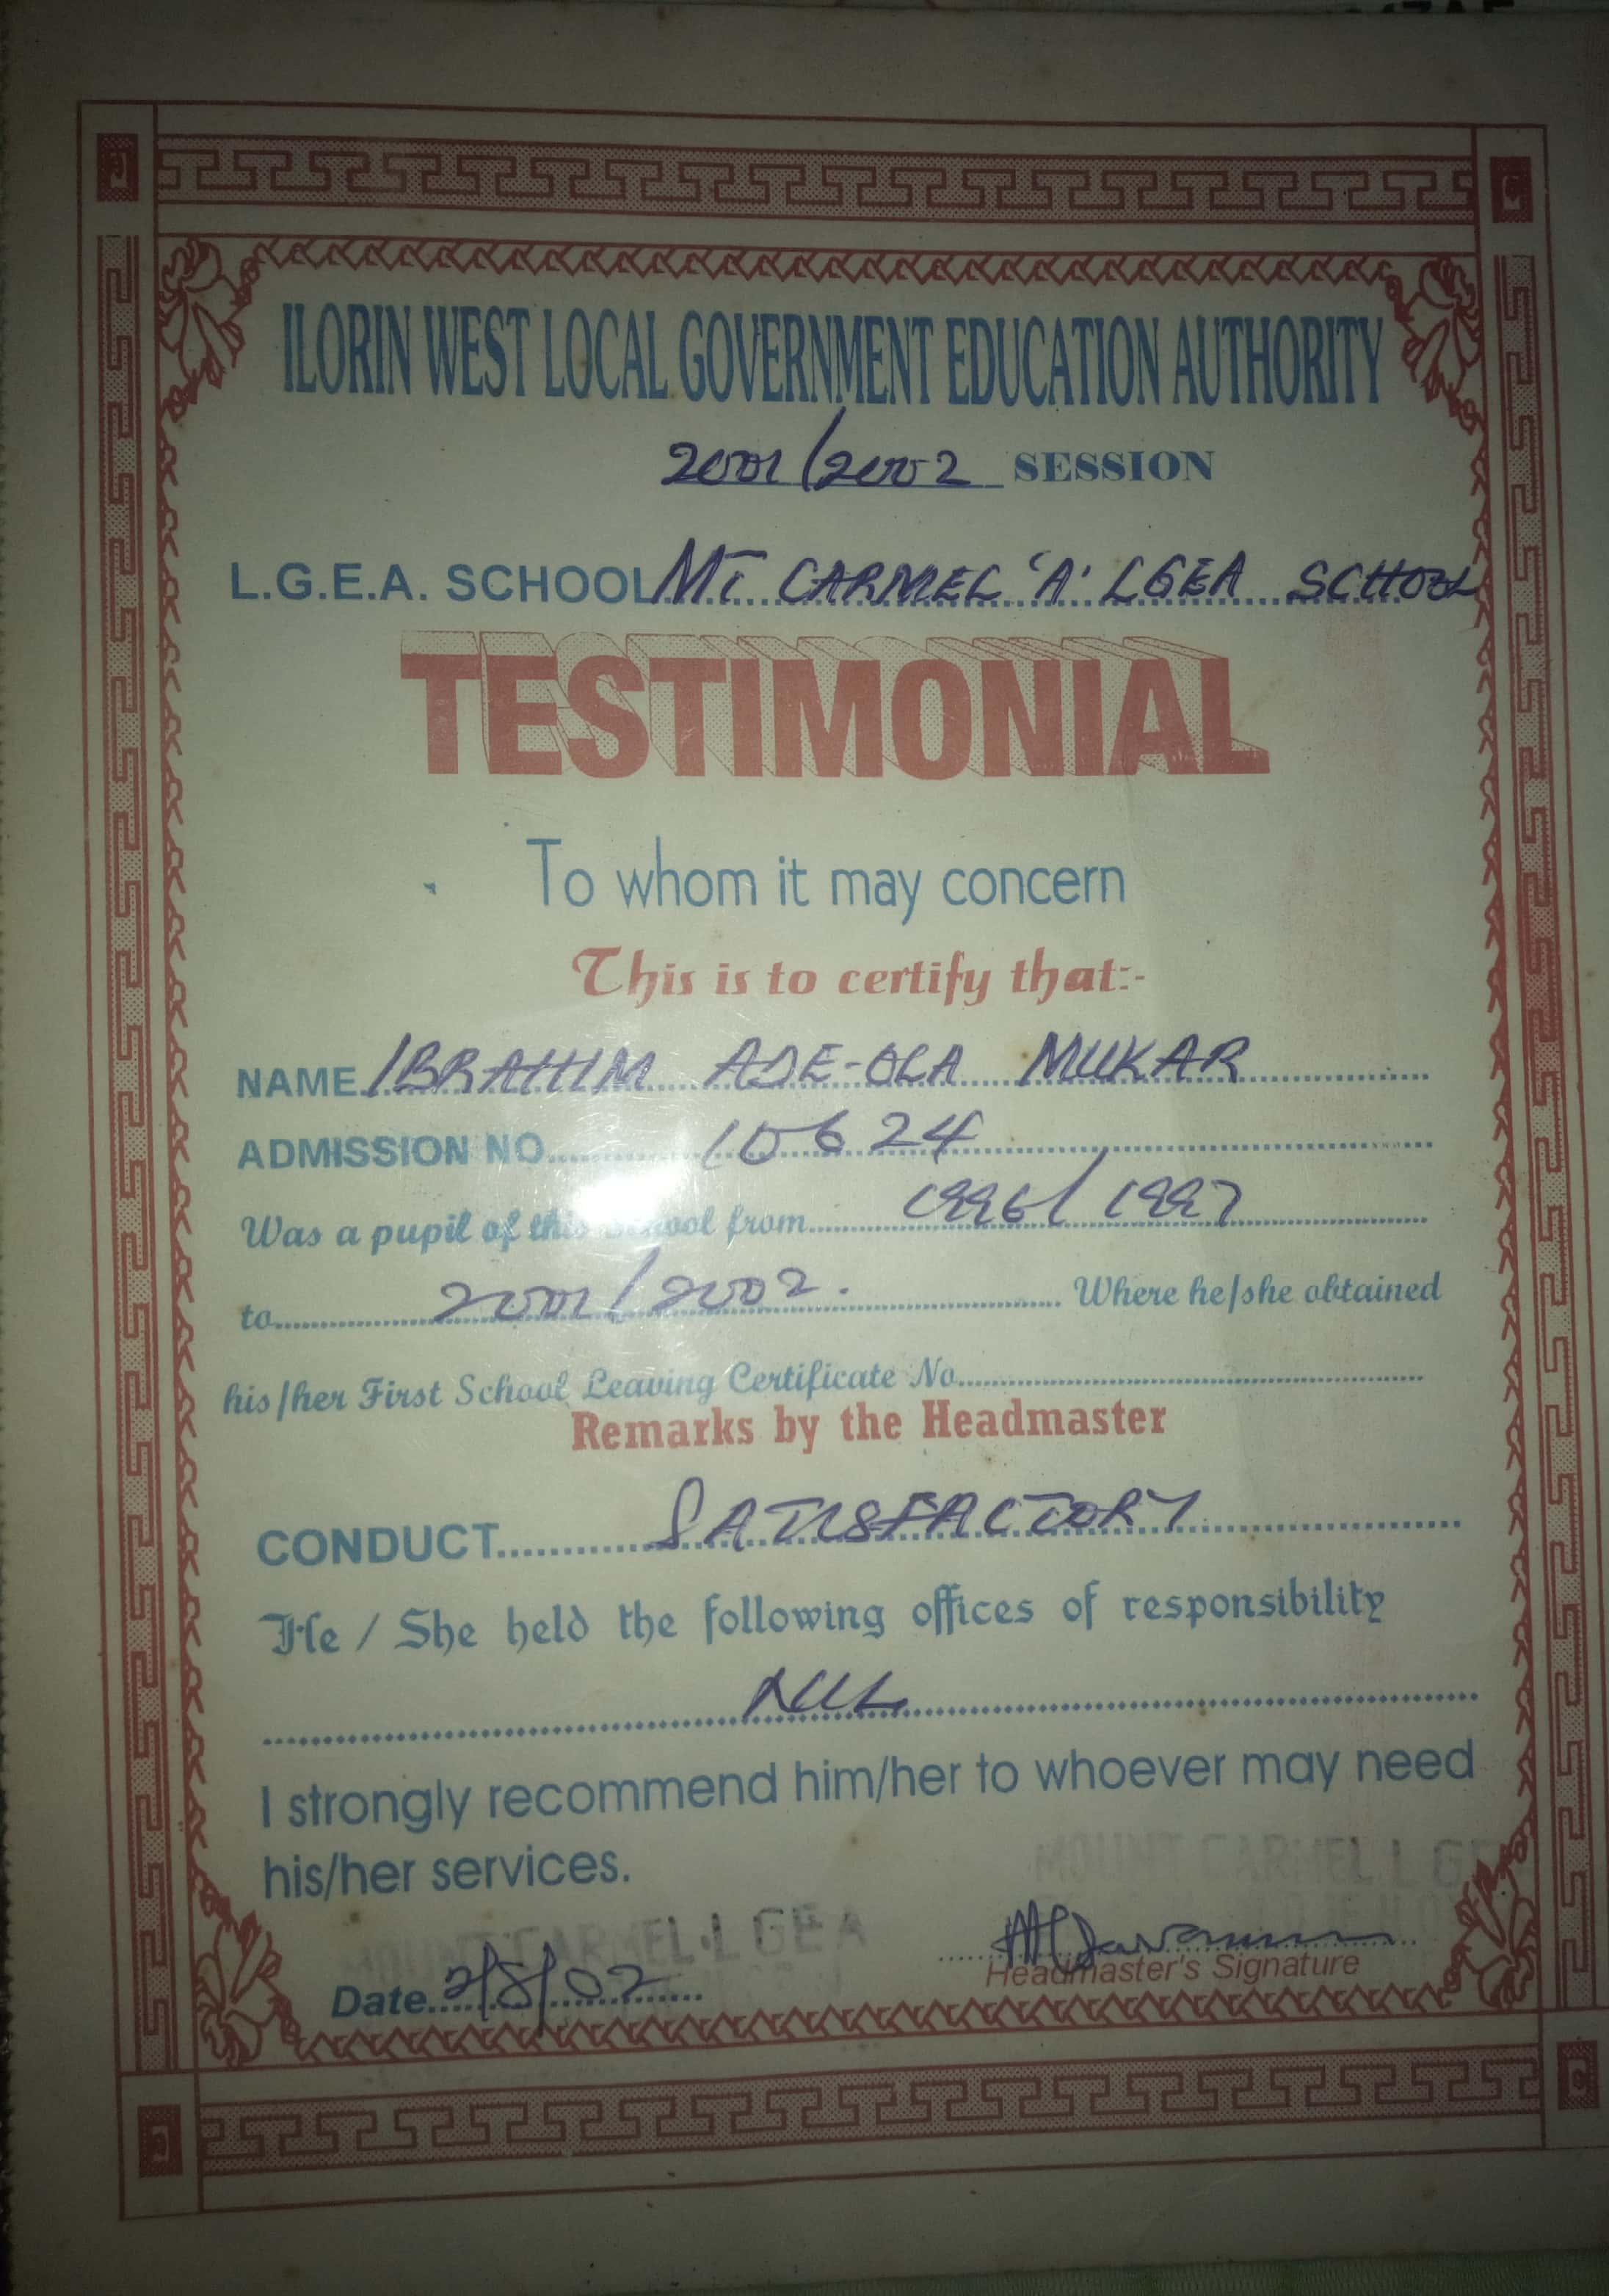 ILORIN WEST LOCAL GOVERNMENT EDUCATION AUTHORITY
2001/2002 SESSION
L.G.E.A. SCHOOL MT CARMEL 'A' LGEA SCHOOL
TESTIMONIAL
To whom it may concern
This is to certify that:-
NAME IBRAHIM ADE-OLA MUKAR
ADMISSION NO. 10624
Was a pupil of this School from 1996/1997
to 2001/2002. Where he/she obtained
his/her First School Leaving Certificate No.
Remarks by the Headmaster
CONDUCT SATISFACTORY
He / She held the following offices of responsibility
NIL
I strongly recommend him/her to whoever may need
his/her services.
MOUNT CARMEL L GE
MOUNT CARMEL L GEA
Date 2/8/02
Headmaster's Signature